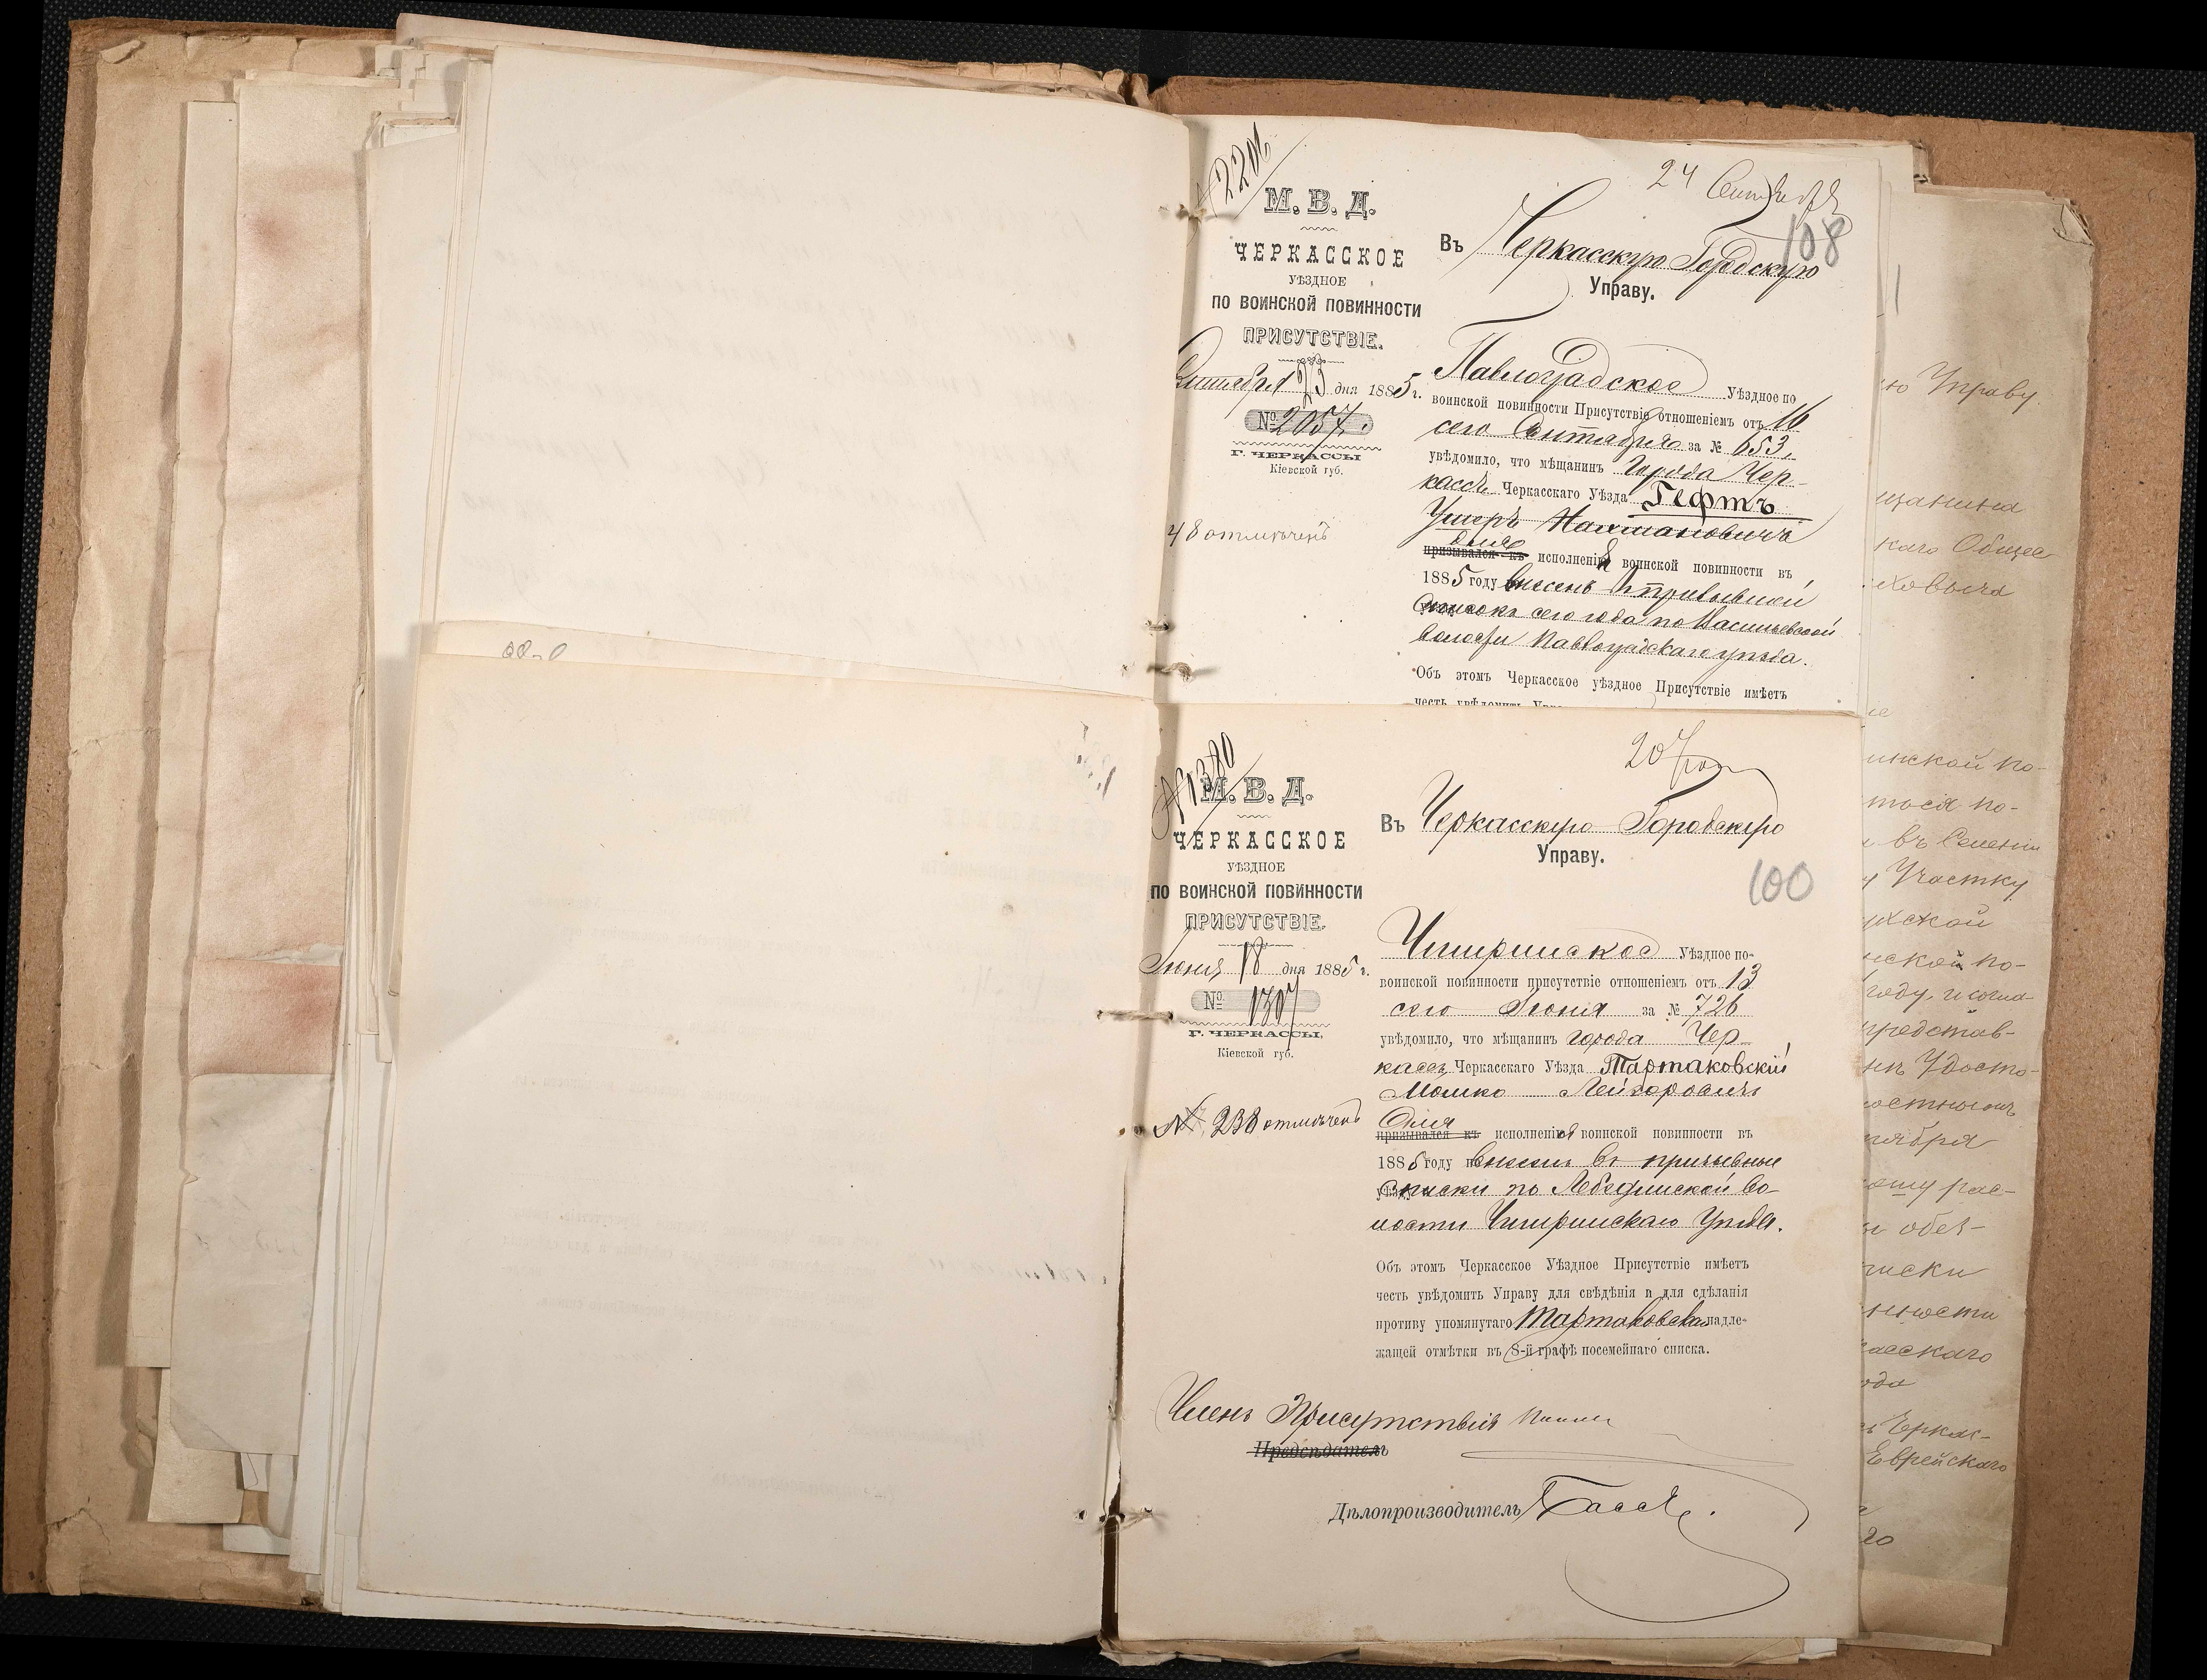 2201
М. В. Д.
ЧЕРКАССКОЕ
УѢЗДНОЕ
ПО ВОИНСКОЙ ПОВИННОСТИ
ПРИСУТСТВІЕ.
Сентября 23 дня 1885 г.
№ 2057.
Г. ЧЕРКАССЫ
Кіевской губ.
48 отмѣченъ
24 Сентября
108
Въ Черкасскую Городскую
Управу.
Павлоградское Уѣздное по
воинской повинности Присутствіе отношеніемъ отъ 16
сего Сентября за № 653,
увѣдомило, что мѣщанинъ города Чер-
кассъ Черкасскаго Уѣзда Гефтъ
Ушеръ Нахмановичъ
для
призывался къ исполненія воинской повинности въ
1885 году внесенъ въ призывной
списокъ сего года по Васильевской
волости Павлоградскаго уѣзда.
Объ этомъ Черкасское уѣздное Присутствіе имѣетъ
честь увѣдомить
№ 1380
М. В. Д.
ЧЕРКАССКОЕ
УѢЗДНОЕ
ПО ВОИНСКОЙ ПОВИННОСТИ
ПРИСУТСТВІЕ.
Іюня 18 дня 1885 г.
№ 1307
Г. ЧЕРКАССЫ,
Кіевской губ.
№ 238 отмѣченъ
20
Въ Черкасскую Городскую
Управу.
100
Чигиринское Уѣздное по-
воинской повинности присутствіе отношеніемъ отъ 13
сего Іюня за № 726
увѣдомило, что мѣщанинъ города Чер-
кассъ Черкасскаго Уѣзда Тартаковскій
Мошко Лейзоровичъ
для
призывался къ исполненія воинской повинности въ
1885 году внесенъ въ призывные
списки по Лебединской во-
лости Чигиринскаго Уѣзда.
Объ этомъ Черкасское Уѣздное Присутствіе имѣетъ
честь увѣдомить Управу для свѣдѣнія и для сдѣланія
противу упомянутаго Тартаковскаго надле-
жащей отмѣтки въ 8-й графѣ посемейнаго списка.
Членъ Присутствія
Предсѣдатель
Дѣлопроизводитель
ю Управу
щанина
каго Общес
ховича
инской по-
тося по-
въ Селеніи
Участку
ской по-
году, и согла-
представ-
Удосто-
ября
ому рас-
обез-
писки
нности
асскаго
ода
Черкас-
Еврейскаго
го